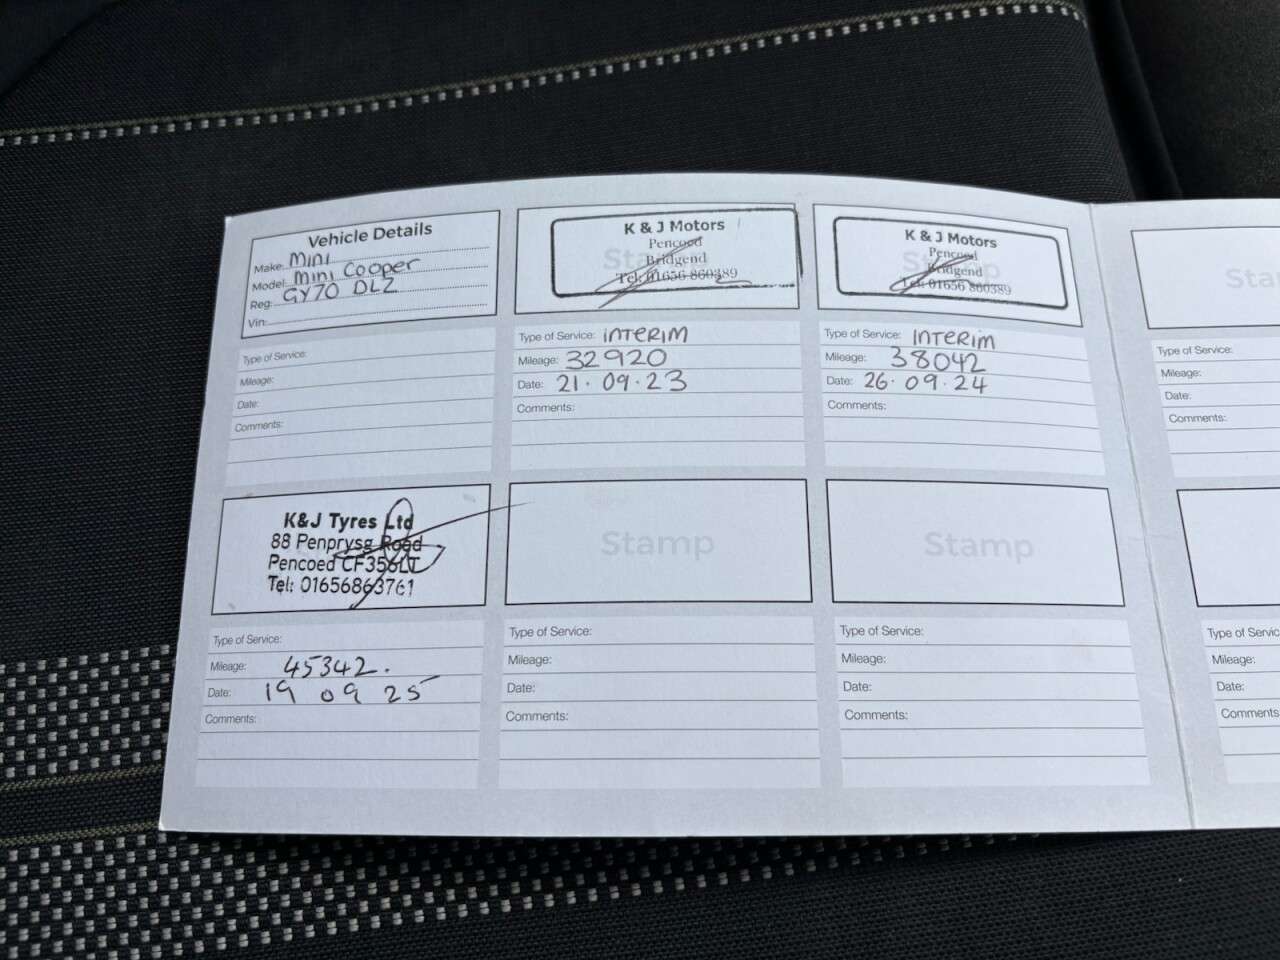 Vehicle Details
Make: Mini
Model: Mini Cooper
Reg: GY70 DLZ
Vin:
Type of Service:
Mileage:
Date:
Comments:
K & J Motors
Pencoed
Bridgend
Tel: 01656 860389
Stamp
Type of Service: INTERIM
Mileage: 32920
Date: 21.09.23
Comments:
K & J Motors
Pencoed
Bridgend
Tel: 01656 860389
Stamp
Type of Service: INTERIM
Mileage: 38042
Date: 26.09.24
Comments:
Sta
Type of Service:
Mileage:
Date:
Comments:
K&J Tyres Ltd
88 Penprysg Road
Pencoed CF356LT
Tel: 01656863761
Type of Service:
Mileage: 45342.
Date: 19 09 25
Comments:
Stamp
Type of Service:
Mileage:
Date:
Comments:
Stamp
Type of Service:
Mileage:
Date:
Comments:
Type of Servic
Mileage:
Date:
Comments